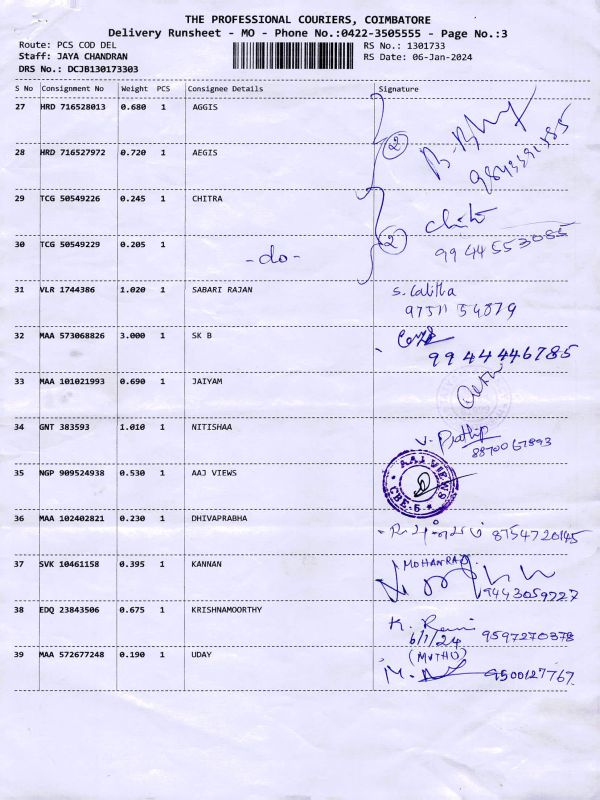 THE PROFESSIONAL COURIERS, COIMBATORE
Delivery Runsheet - MO - Phone No.:0422-3505555 - Page No.:3
Route: PCS COD DEL RS No.: 1301733
Staff: JAYA CHANDRAN RS Date: 06-Jan-2024
DRS No.: DCJB130173303
S No Consignment No Weight PCS Consignee Details Signature
27 HRD 716528013 0.680 1 AGGIS
28 HRD 716527972 0.720 1 AEGIS
2
29 TCG 50549226 0.245 1 CHITRA
30 TCG 50549229 0.205 1 -do- 2 9944553085
31 VLR 1744386 1.020 1 SABARI RAJAN S. Lalitha
32 MAA 573068826 3.000 1 SK B
9944446785
33 MAA 101021993 0.690 1 JAIYAM
34 GNT 383593 1.010 1 NITISHAA V. Prathip
8870067893
35 NGP 909524938 0.530 1 AAJ VIEWS AAJ VIEWS CBE-6
36 MAA 102402821 0.230 1 DHIVAPRABHA 8754720145
37 SVK 10461158 0.395 1 KANNAN MOHANRAJ
9443059727
38 EDQ 23843506 0.675 1 KRISHNAMOORTHY K. Rani
6/1/24 9597270378
39 MAA 572677248 0.190 1 UDAY (MUTHU)
9500127767